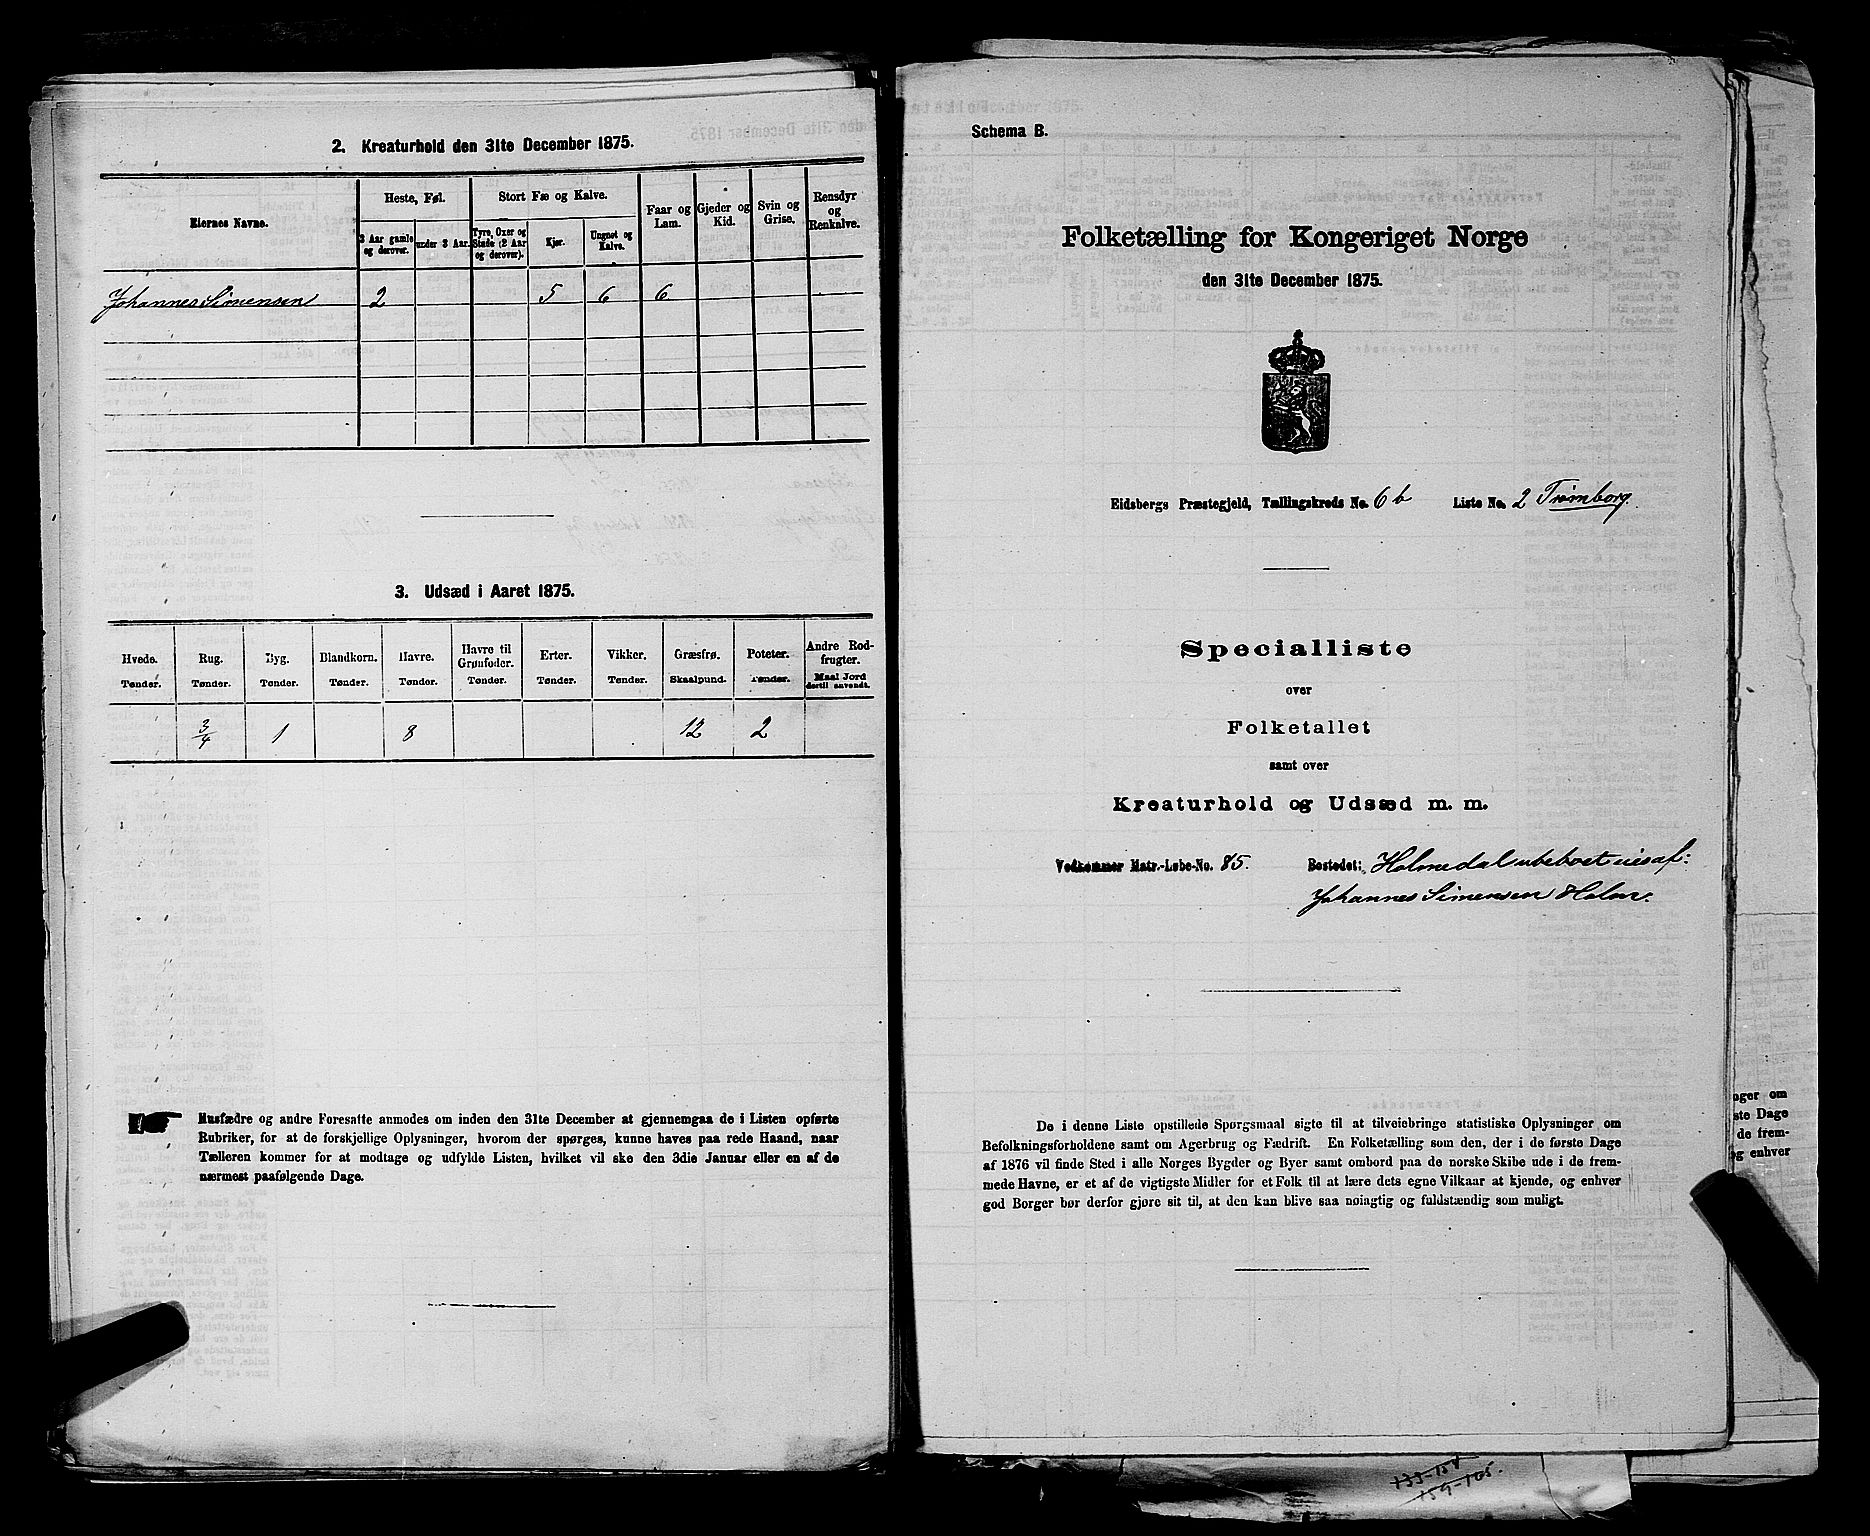 2. Kreaturhold den 31te December 1875.
Eiernes Navne.
Heste, Føl.
Stort Fæ og Kalve.
Faar og Lam.
Gjeder og Kid.
Svin og Grise.
Rensdyr og Renkalve.
3 Aar gamle og derover.
under 3 Aar.
Tyre, Oxer og Stude (2 Aar og derover).
Kjør.
Ungnøt og Kalve.
Johannes Simensen 2 5 6 6
3. Udsæd i Aaret 1875.
Hvede. Rug. Byg. Blandkorn. Havre. Havre til Grønfoder. Erter. Vikker. Græsfrø. Poteter. Andre Rodfrugter.
Tønder. Tønder. Tønder. Tønder. Tønder. Tønder. Tønder. Tønder. Skaalpund. Tønder. Maal Jord dertil anvendt.
3/4 1 8 12 2
Husfædre og andre Foresatte anmodes om inden den 31te December at gjennemgaa de i Listen opførte
Rubriker, for at de forskjellige Oplysninger, hvorom der spørges, kunne haves paa rede Haand, naar
Tælleren kommer for at modtage og udfylde Listen, hvilket vil ske den 3die Januar eller en af de
nærmest paafølgende Dage.
Schema B.
Folketælling for Kongeriget Norge
den 31te December 1875.
Eidsbergs Præstegjeld, Tællingskreds No. 6 b Liste No. 2 Trømborg.
Specialliste
over
Folketallet
samt over
Kreaturhold og Udsæd m. m.
Vedkommer Matr.-Løbe-No. 85. Bostedet: Holmedal ubeboet eies af:
Johannes Simensen Holm.
De i denne Liste opstillede Spørgsmaal sigte til at tilveiebringe statistiske Oplysninger om
Befolkningsforholdene samt om Agerbrug og Fædrift. En Folketælling som den, der i de første Dage
af 1876 vil finde Sted i alle Norges Bygder og Byer samt ombord paa de norske Skibe ude i de frem-
mede Havne, er et af de vigtigste Midler for et Folk til at lære dets egne Vilkaar at kjende, og enhver
god Borger bør derfor gjøre sit til, at den kan blive saa nøiagtig og fuldstændig som muligt.
nger om
ste Dage
de frem-
og enhver
159-165.